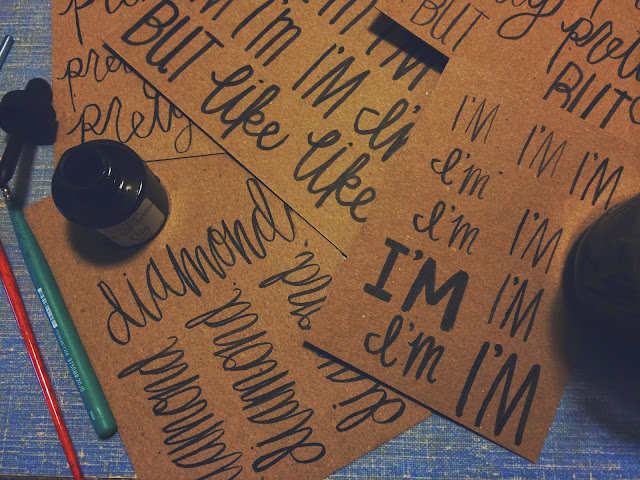 pretty
pretty
BUT
I'M
I'M
I'M
I'M
I'M
BUT like I'M I'm
like like
BUT
pretty
BUT
I'M I'M I'M
I'm
I'm I'M
I'M I'M
I'm I'M
diamond
diamond
diamond
diamond